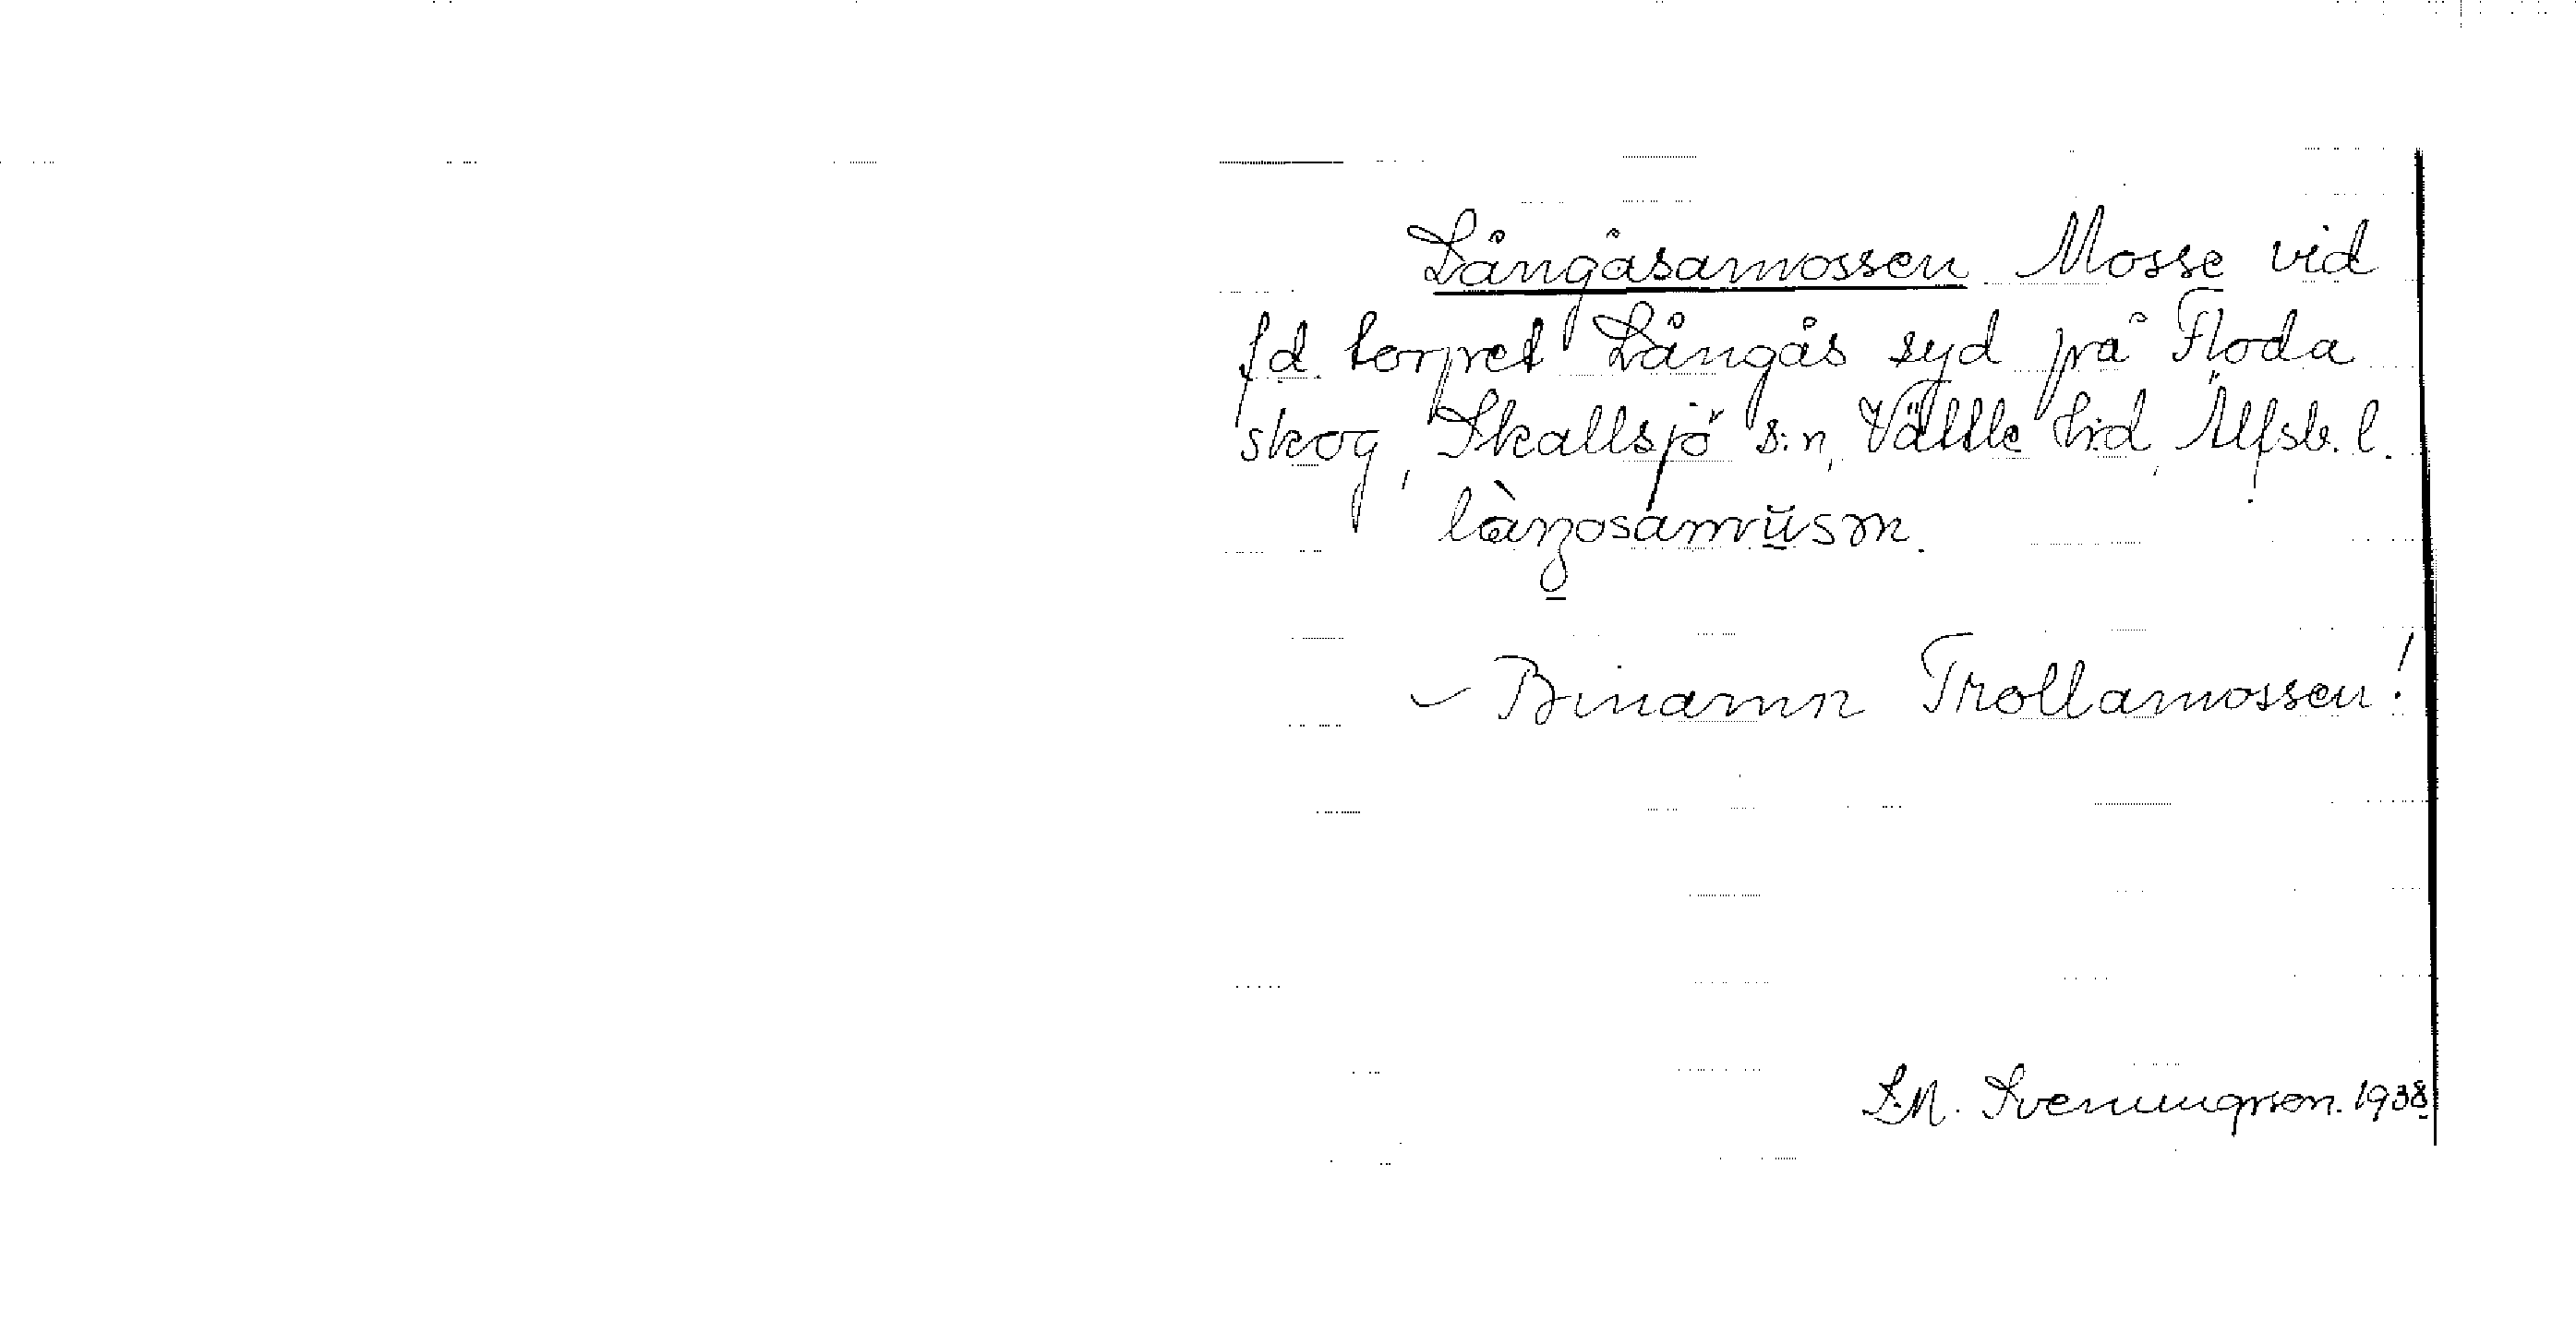 Långåsamossen Mosse vid
f.d. torpet Långås syd på Floda
skog, Skallsjö s:n, Vättle h:d, Älfsb. l.
Binamn Trollamossen!
S.M. Svenungsson. 1938